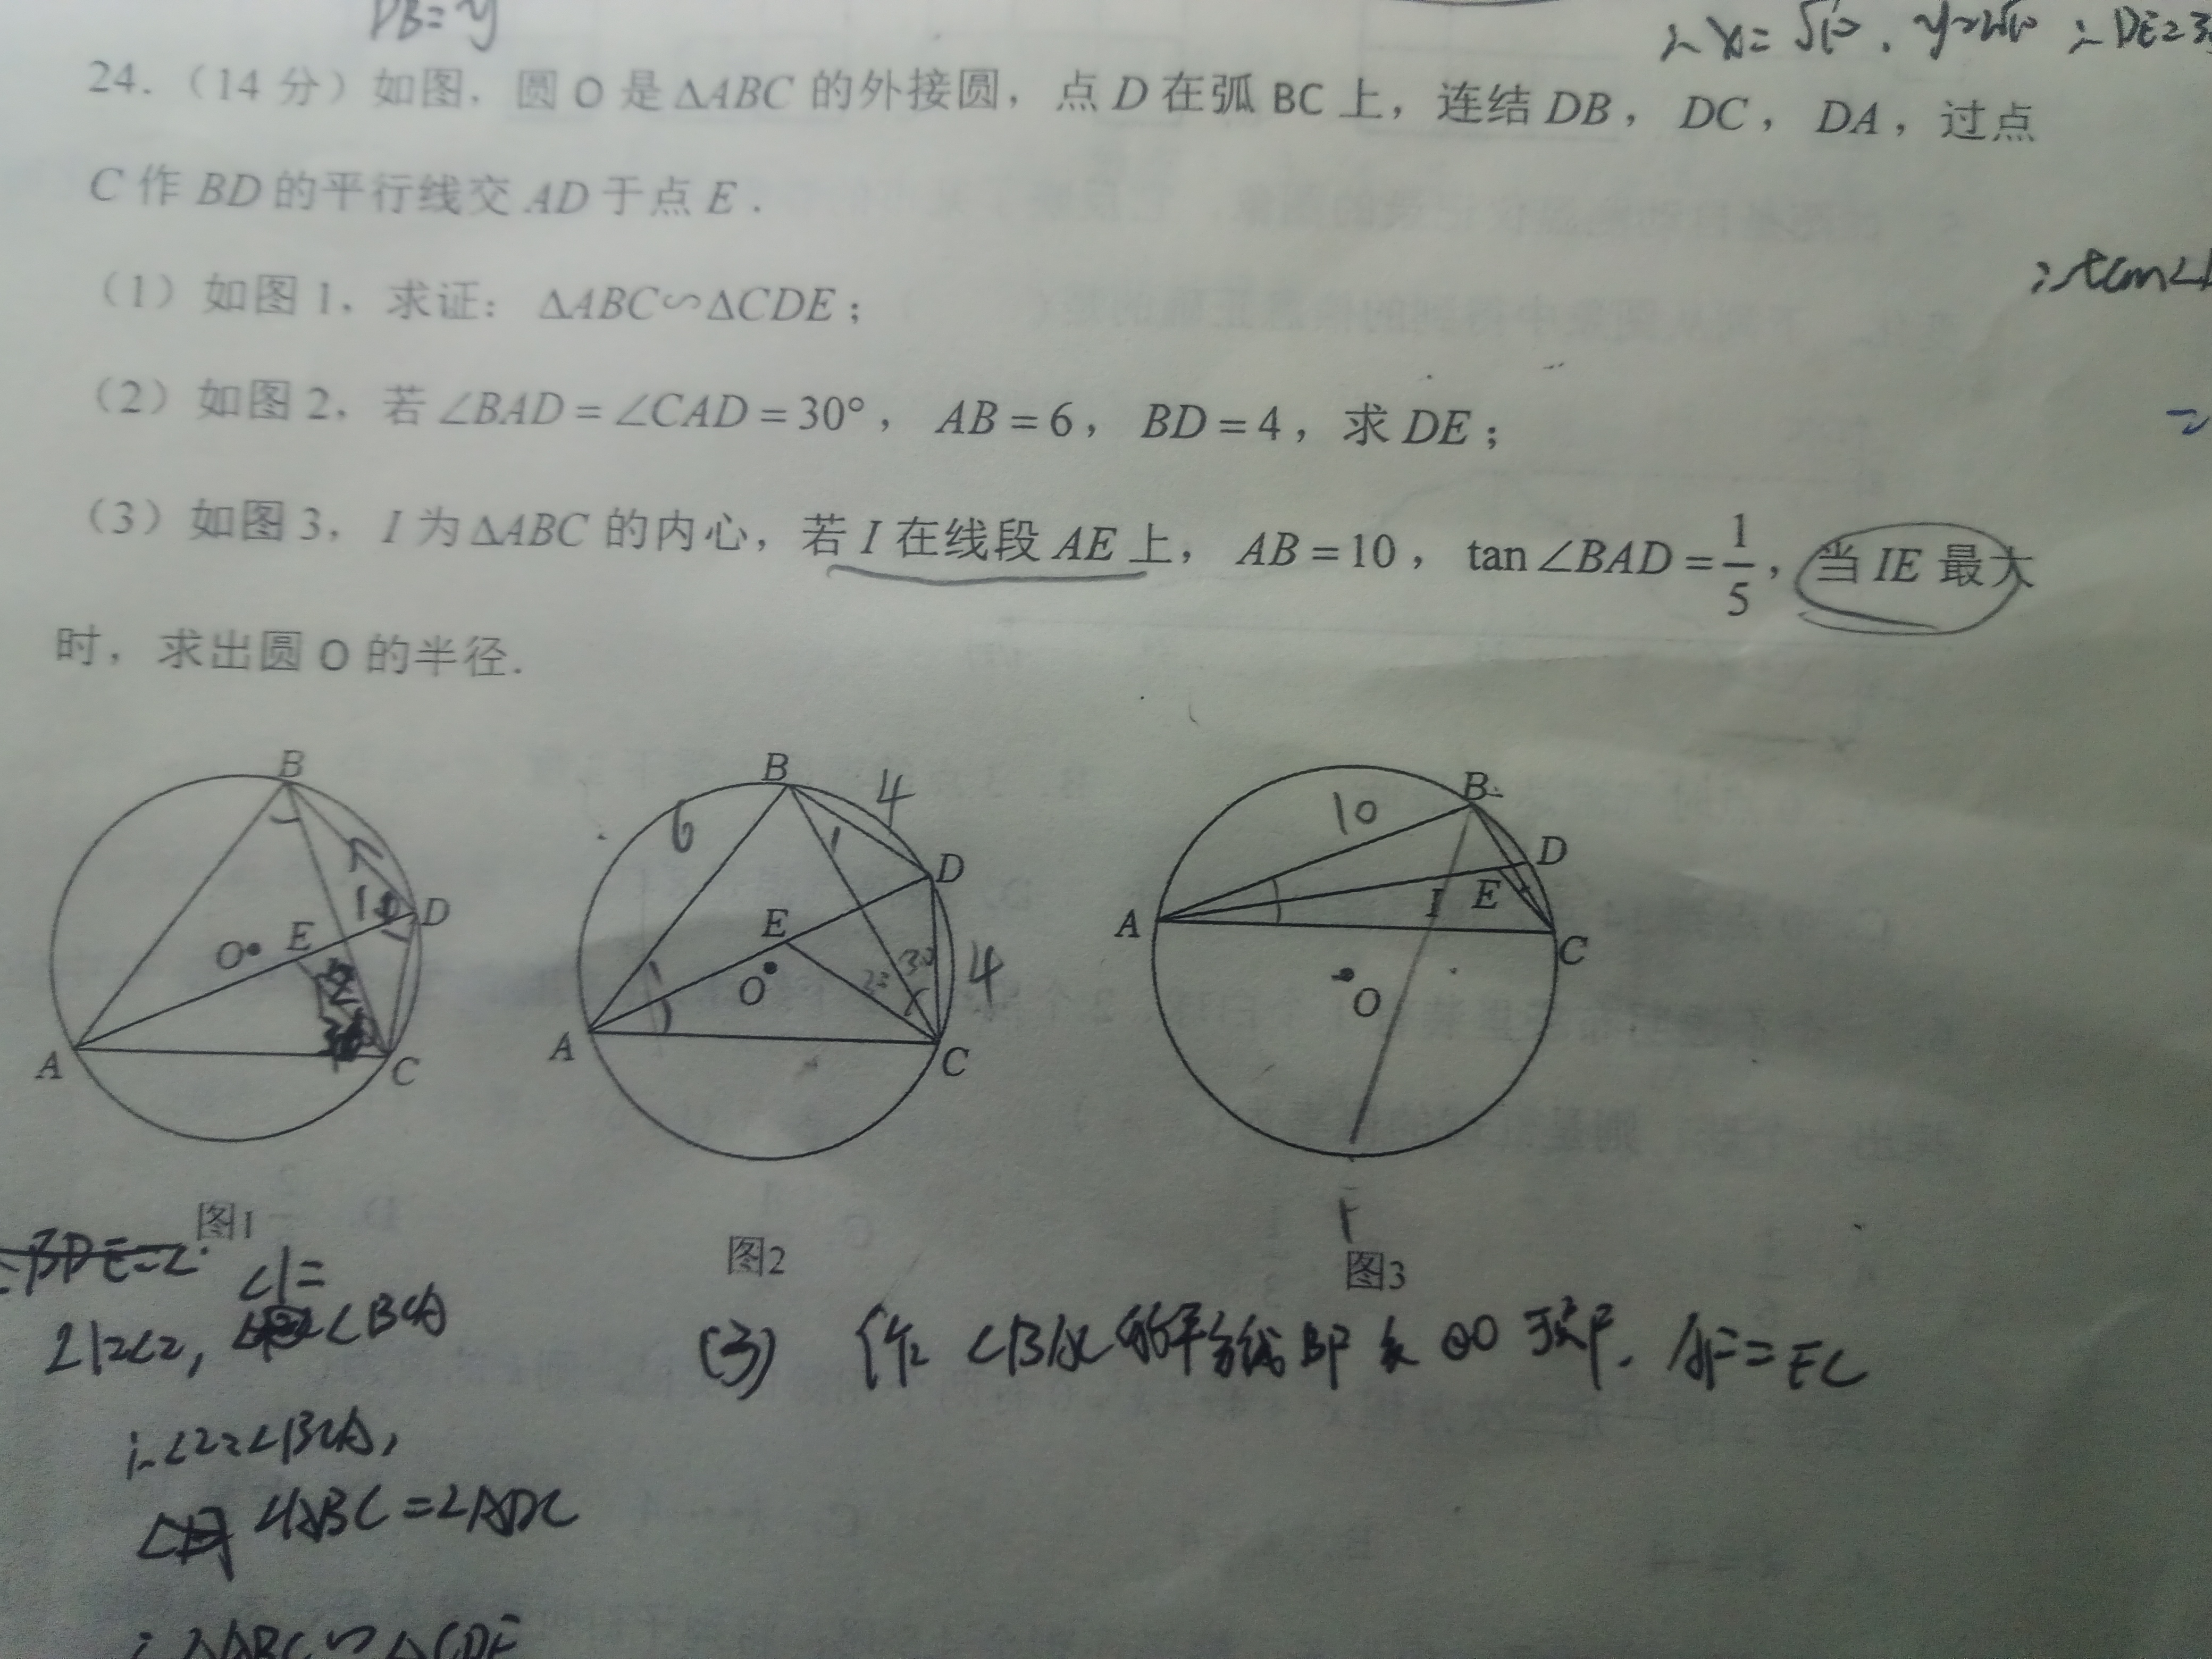 DB=y
∴x=√10，y=2√10 ∴DE=3
24.（14 分）如图，圆 O 是 ΔABC 的外接圆，点 D 在弧 BC 上，连结 DB，DC，DA，过点
C 作 BD 的平行线交 AD 于点 E．
（1）如图 1，求证：ΔABC∽ΔCDE；
∴tan∠
（2）如图 2，若∠BAD=∠CAD=30°，AB=6，BD=4，求 DE；
（3）如图 3，I 为 ΔABC 的内心，若 I 在线段 AE 上，AB=10，tan∠BAD=1/5，当 IE 最大
时，求出圆 O 的半径．
B
D
O
E
A
C
图1
B
4
6
1
D
E
O
30
4
A
C
图2
B
10
D
I
E
A
C
O
F
图3
∠1=
∠1=∠2, ∠BCA
∴∠2=∠BCA,
∠ABC=∠ADC
∴ΔABC∽ΔCDE
(3) 作 的平分线 BF 交 ⊙O 于点F.